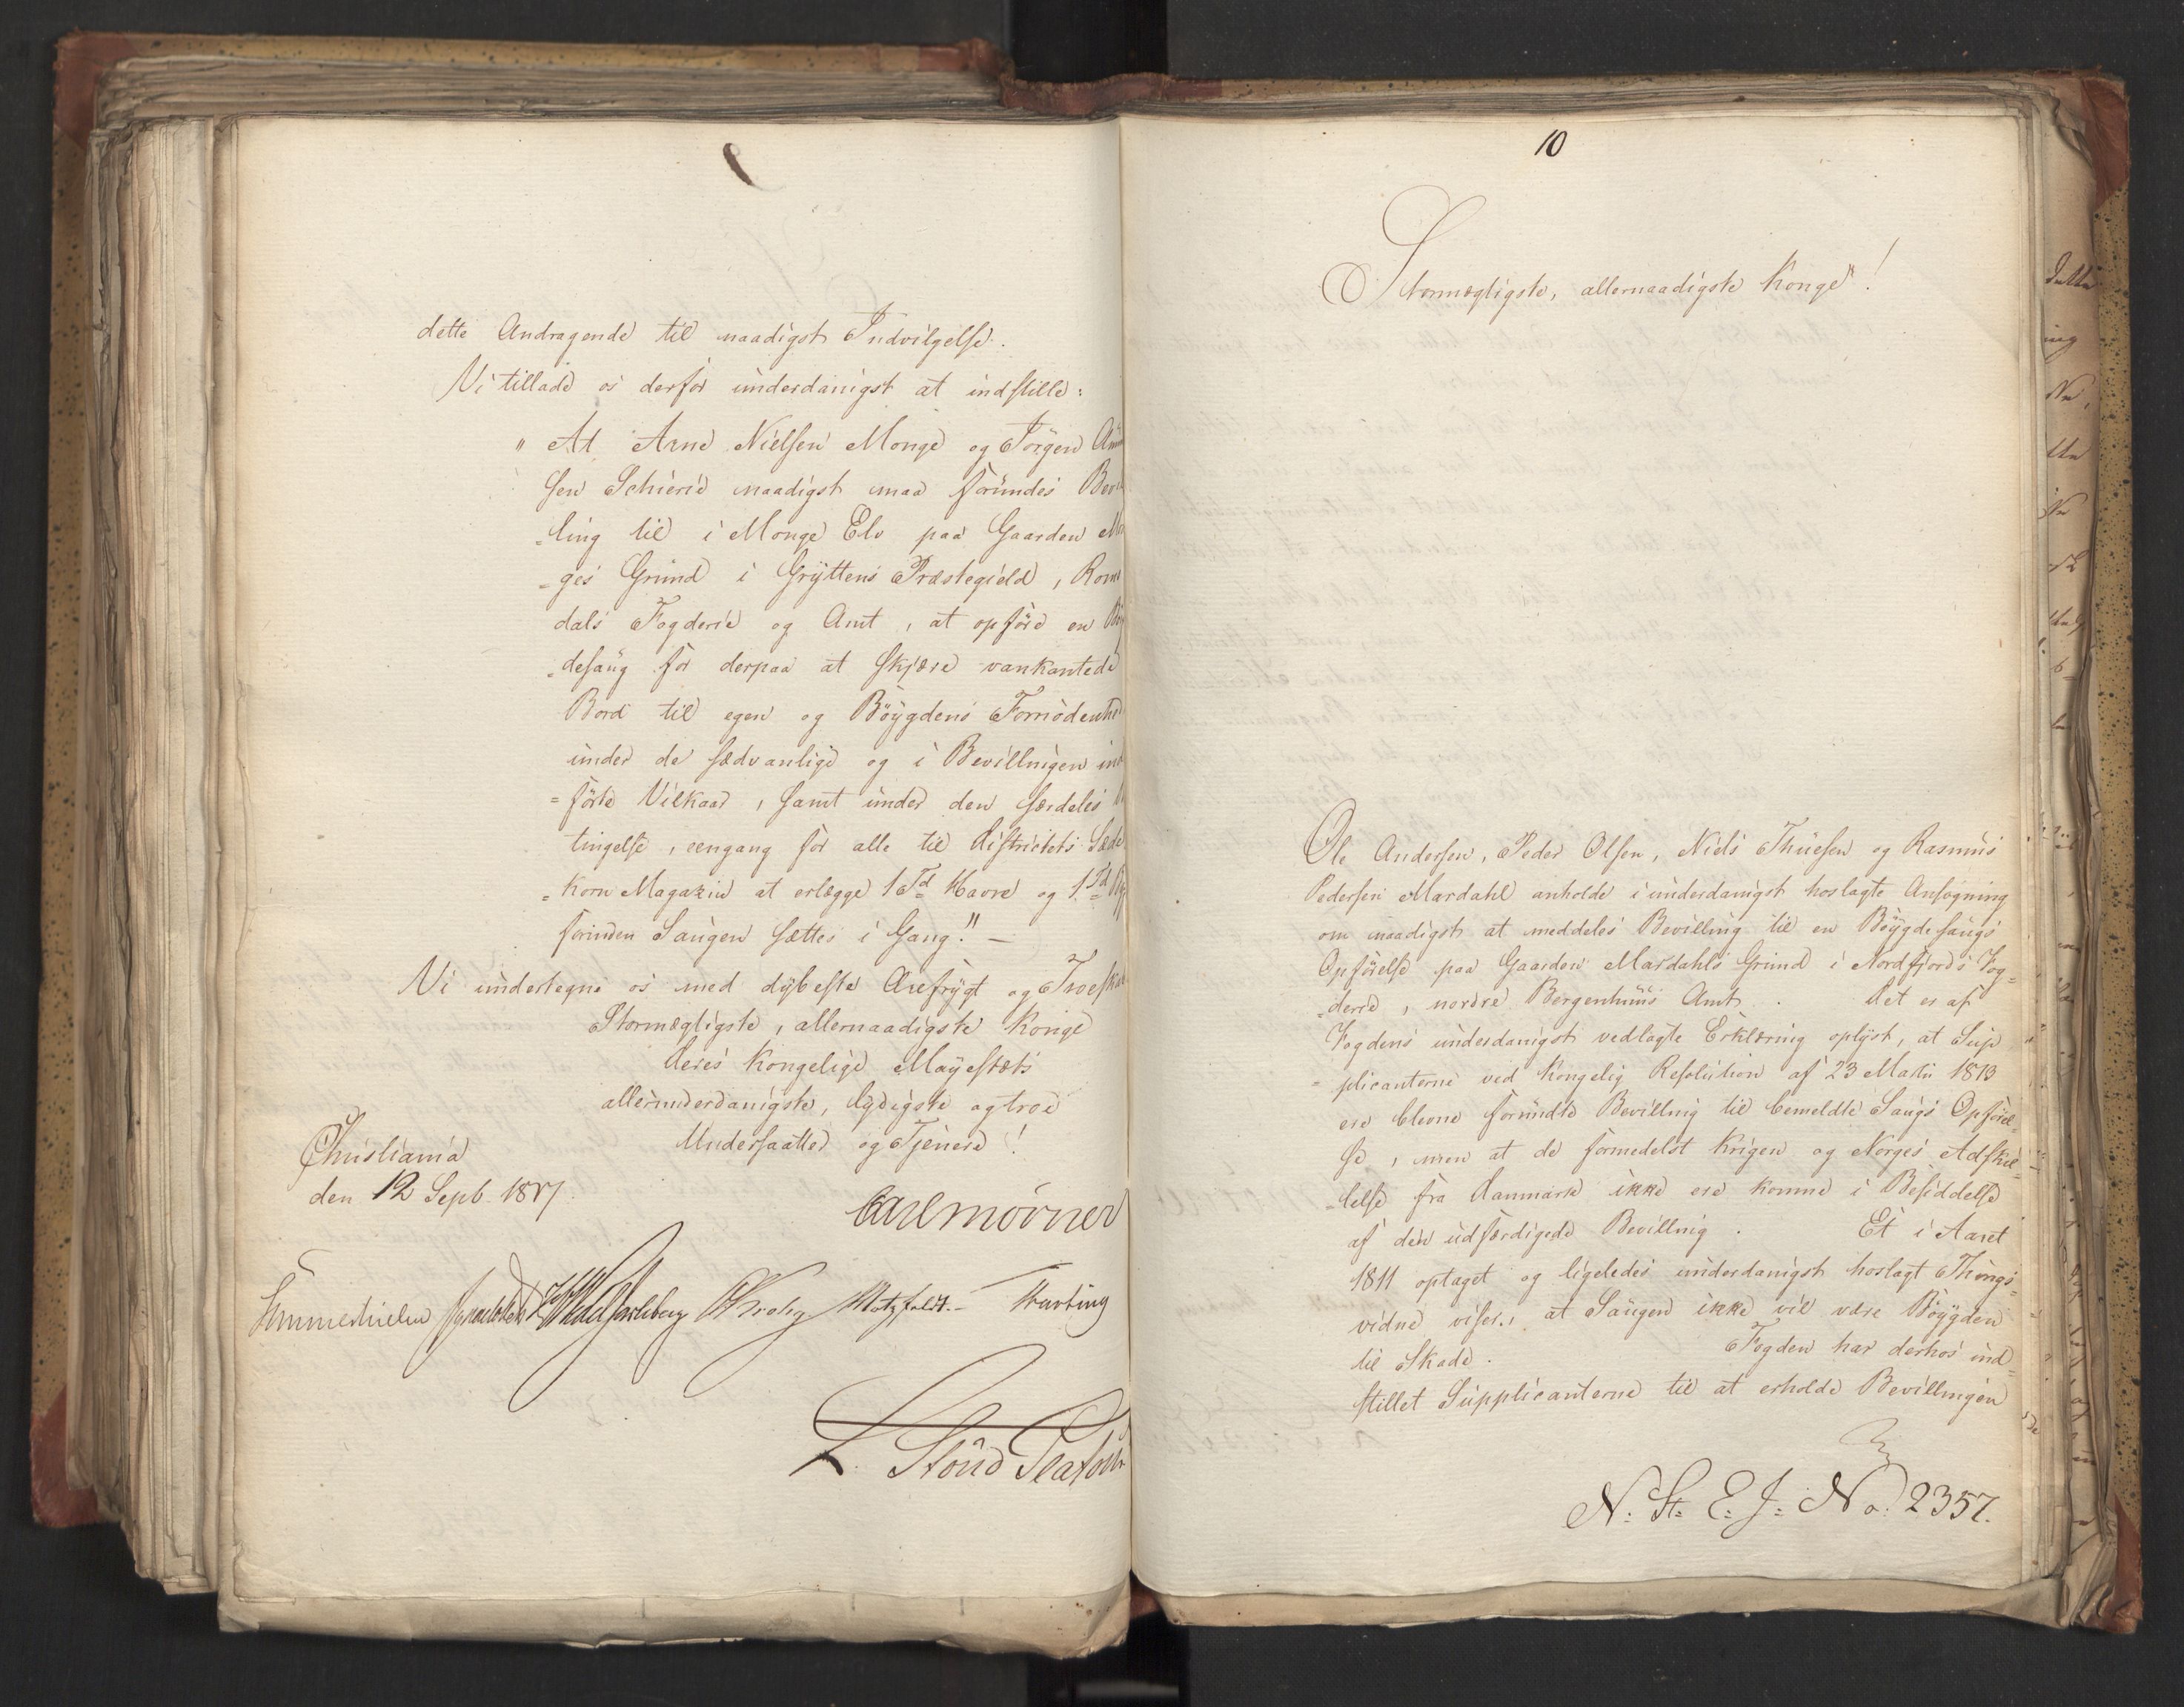 dette Andragende til naadigst Indvilgelse.
Vi tillade os derfor underdanigst at indstille:
" At Arne Nielsen Monge og Jörgen
sen Schierie naadigst maa forundes Bevil
=ling til i Monge Elv paa Gaarden Mon
=ges Grund i Gryttens Præstegield, Roms
dals Fogderie og Amt, at opföre en Böy
=desaug for derpaa at skjære vankantede
Bord til egen og Böygdens Fornödenhed
under de sædvanlige og i Bevillingen ind
=förte Vilkaar, samt under den særdeles Be
tingelse, eengang for alle til Districtets Sæde
=korn Magazin at erlægge 1 Td Havre og 1 Td Byg
forinden Saugen sættes i Gang." —
Vi undertegne os med dybeste Ærefrygt og Troeskab
Stormægtigste, allernaadigste Konge
Deres Kongelige Mayestæts
allerunderdanigste, lydigste og troe
Undersaatter og Tjenere!
Christiania
den 12 Septb. 1817.
Carl Mörner
Sommerhielm Aynæs HWedelJarlsberg Krohg Motzfeldt. Harting
L. Stoud Platou
10
Stormægtigste, allernaadigste Konge!
Ole Andersen, Peder Olsen, Niels Thuesen og Rasmus
Pedersen Mardahl anholde i underdanigst hoslagte Ansögning
om naadigst at meddeles Bevilling til en Böygdesaugs
Opförelse paa Gaarden Mardahls Grund i Nordfjords Fog=
=derie, nordre Bergenhuus Amt. Det er af
Fogdens underdanigst vedlagte Erklæring oplyst, at Sup
=plicanterne ved Kongelig Resolution af 23 Martii 1813
ere blevne forundte Bevilling til bemeldte Saugs Opförel=
se, men at de formedelst Krigen og Norges Adskil=
=lelse fra Danmark ikke ere komne i Besiddelse
af den udfærdigede Bevilling. Et i Aaret
1811 optaget og ligeledes underdanigst hoslagt Things=
vidne viser, at Saugen ikke vil være Böygden
til Skade. Fogden har derhos ind=
stillet Supplicanterne til at erholde Bevillingen
N. St. E. J. No. 2357.